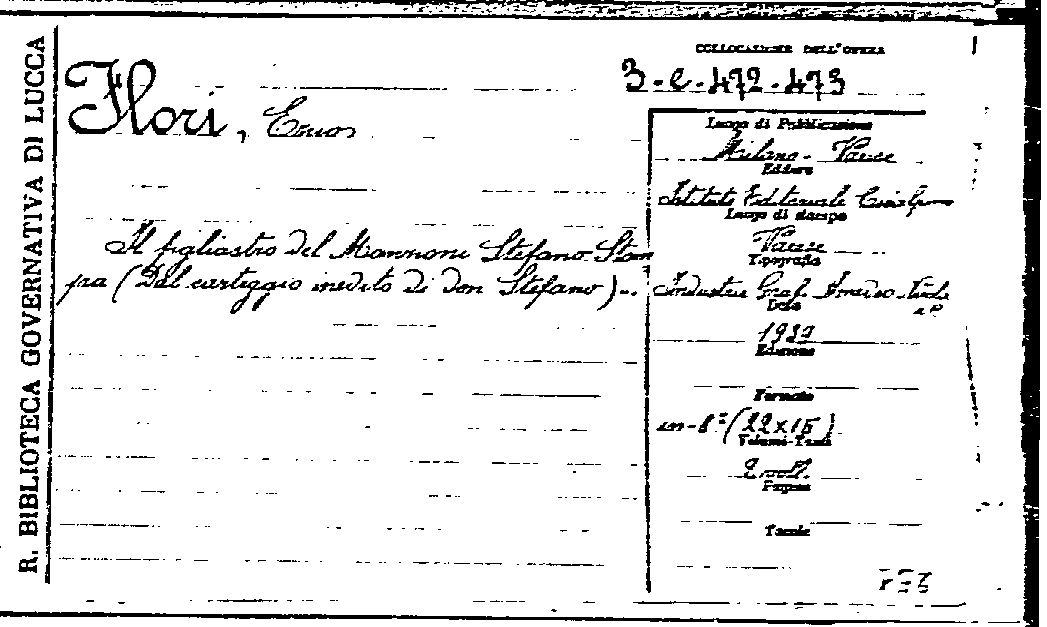 R. BIBLIOTECA GOVERNATIVA DI LUCCA
COLLOCAZIONE DELL'OPERA
3-e-472-473
Flori, Ezio
Il figliastro del Manzoni Stefano Stam
pa (Dal carteggio inedito di don Stefano)..
Luogo di Pubblicazione
Milano - Varese
Editore
Istituto Editoriale Cisalp
Luogo di stampa
Varese
Tipografia
Industrie Graf. Amedeo Nicola
Data
1939
Edizione
Formato
in-8° (22x15)
Volumi-Tomi
2 voll.
Pagine
Tavole